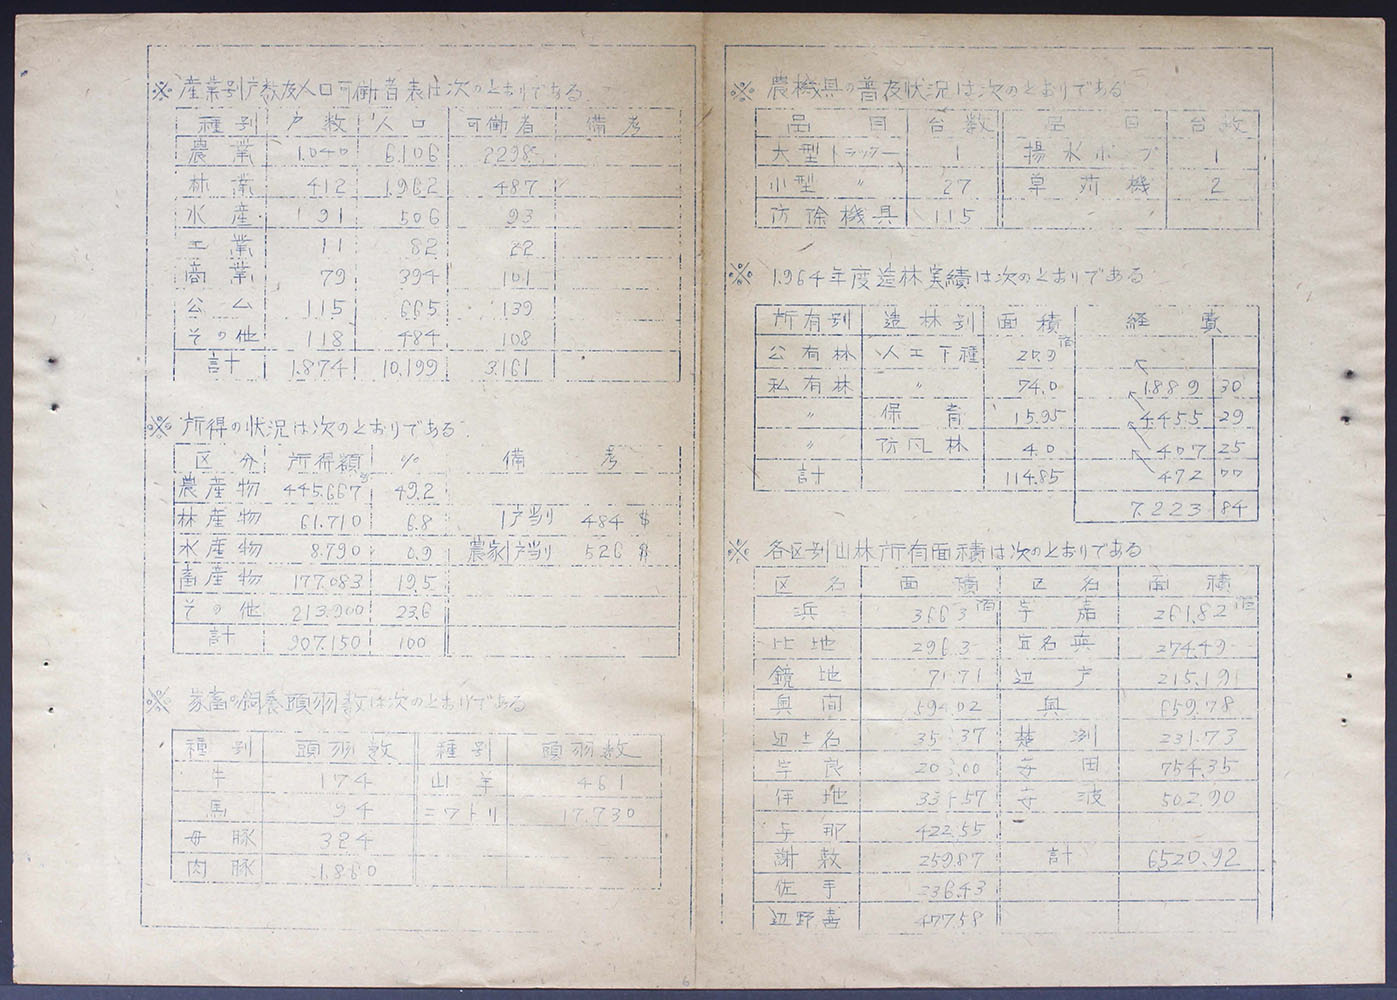 ※ 産業別戸数及人口可働者表は次のとおりである
種別 戸数 人口 可働者 備考
農業 1.040 6.106 2298
林業 412 1.962 487
水産 191 506 93
工業 11 82 22
商業 79 394 101
公ム 115 665 139
その他 118 484 108
計 1.874 10.199 3.161
※ 所得の状況は次のとおりである
区分 所得額 % 備考
農産物 445.667 49.2
林産物 61.710 6.8 1戸当り 484 $
水産物 8.790 0.9 農家1戸当り 526 $
畜産物 177.083 19.5
その他 213.900 23.6
計 907.150 100
※ 家畜の飼養頭羽数は次のとおりである
種別 頭羽数 種別 頭羽数
牛 174 山羊 461
馬 94 ニワトリ 17.730
母豚 324
肉豚 1.860
※ 農機具の普及状況は次のとおりである
品目 台数 品目 台数
大型トラクター 1 揚水ポンプ 1
小型 〃 27 草苅機 2
防除機具 115
※ 1.964年度造林実績は次のとおりである
所有別 造林別 面積 経費
公有林 人工下種 20.9
私有林 〃 74.0 1.889 30
〃 保育 15.95 4455 29
〃 防風林 4.0 407 25
計 114.85 472 00
7.223 84
※ 各区別山林所有面積は次のとおりである
区名 面積 区名 面積
浜 宇嘉 261.82
比地 296.3 宜名真 274.49
鏡地 71.71 辺戸 215.19
奥間 594.02 奥 659.78
辺土名 楚洲 231.73
宇良 安田 754.35
伊地 安波 502.90
与那 422.55
謝敷 259.87 計 6520.92
佐手 236.43
辺野喜 477.58
6